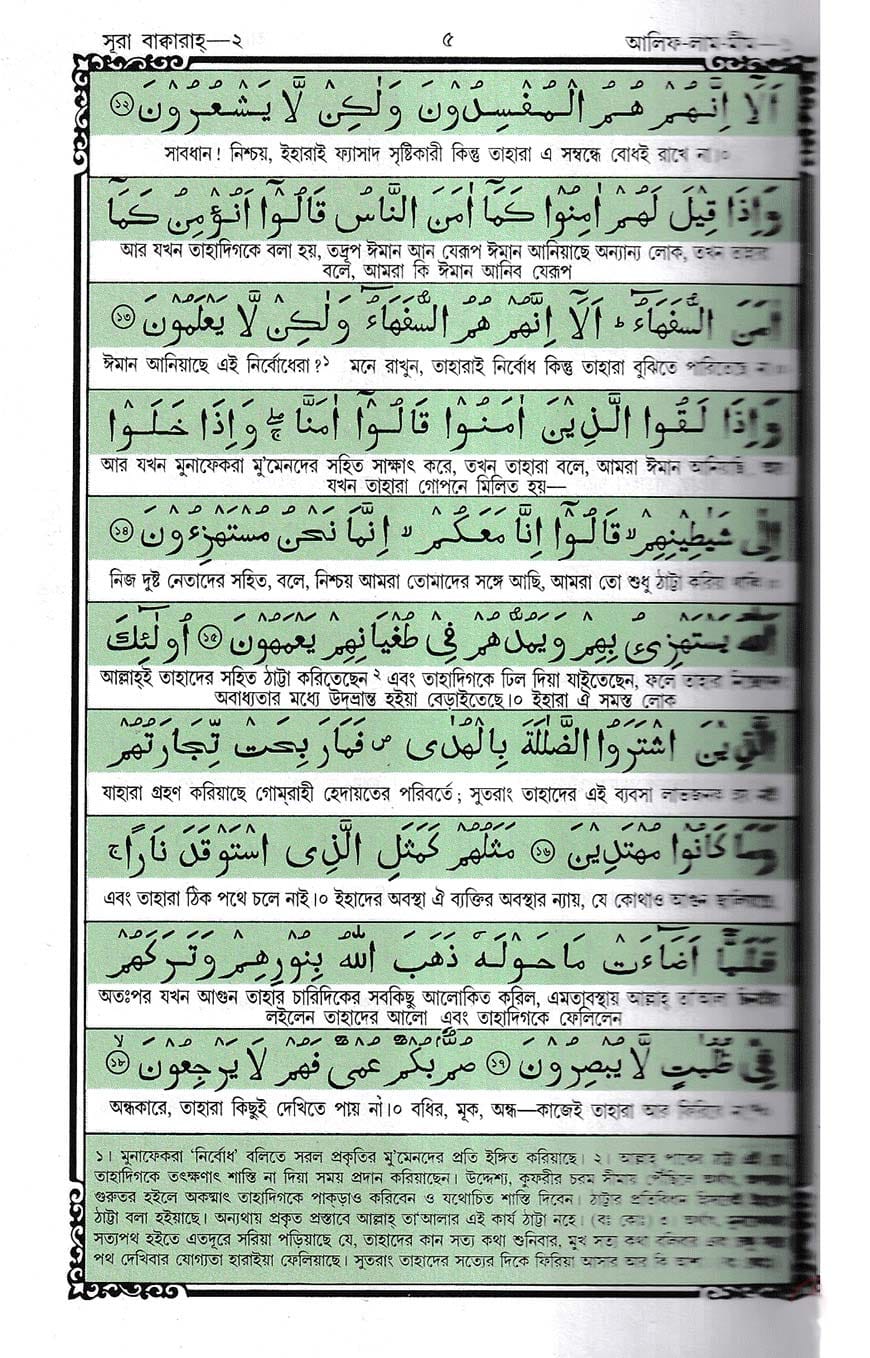 সূরা বাক্বারাহ্—২ ৫ আলিফ-লাম-মীম—
اَلَآ اِنَّهُمْ هُمُ الْمُفْسِدُوْنَ وَلٰكِنْ لَّا يَشْعُرُوْنَ ۝১২
সাবধান! নিশ্চয়, ইহারাই ফ্যাসাদ সৃষ্টিকারী কিন্তু তাহারা এ সম্বন্ধে বোধই রাখে না।০
وَاِذَا قِيْلَ لَهُمْ اٰمِنُوْا كَمَآ اٰمَنَ النَّاسُ قَالُوْٓا اَنُؤْمِنُ كَمَآ
আর যখন তাহাদিগকে বলা হয়, তদ্রূপ ঈমান আন যেরূপ ঈমান আনিয়াছে অন্যান্য লোক, তখন তাহারা
বলে, আমরা কি ঈমান আনিব যেরূপ
اٰمَنَ السُّفَهَآءُ ؕ اَلَآ اِنَّهُمْ هُمُ السُّفَهَآءُ وَلٰكِنْ لَّا يَعْلَمُوْنَ ۝১৩
ঈমান আনিয়াছে এই নির্বোধেরা?১ মনে রাখুন, তাহারাই নির্বোধ কিন্তু তাহারা বুঝিতে পারিতেছে না।
وَاِذَا لَقُوا الَّذِيْنَ اٰمَنُوْا قَالُوْٓا اٰمَنَّا ۚۖ وَاِذَا خَلَوْا
আর যখন মুনাফেকরা মু'মেনদের সহিত সাক্ষাৎ করে, তখন তাহারা বলে, আমরা ঈমান আনিয়াছি,
যখন তাহারা গোপনে মিলিত হয়—
اِلٰى شَيٰطِيْنِهِمْ ۙ قَالُوْٓا اِنَّا مَعَكُمْ ۙ اِنَّمَا نَحْنُ مُسْتَهْزِءُوْنَ ۝১৪
নিজ দুষ্ট নেতাদের সহিত, বলে, নিশ্চয় আমরা তোমাদের সঙ্গে আছি, আমরা তো শুধু ঠাট্টা করিয়া থাকি।
اَللّٰهُ يَسْتَهْزِئُ بِهِمْ وَيَمُدُّهُمْ فِيْ طُغْيَانِهِمْ يَعْمَهُوْنَ ۝১৫ اُولٰٓئِكَ
আল্লাহ্ই তাহাদের সহিত ঠাট্টা করিতেছেন ২ এবং তাহাদিগকে ঢিল দিয়া যাইতেছেন, ফলে তাহারা
অবাধ্যতার মধ্যে উদভ্রান্ত হইয়া বেড়াইতেছে।০ ইহারা ঐ সমস্ত লোক
الَّذِيْنَ اشْتَرَوُا الضَّلٰلَةَ بِالْهُدٰى ۪ فَمَا رَبِحَتْ تِّجَارَتُهُمْ
যাহারা গ্রহণ করিয়াছে গোম্‌রাহী হেদায়তের পরিবর্তে; সুতরাং তাহাদের এই ব্যবসা লাভজনক হয় নাই
وَمَا كَانُوْا مُهْتَدِيْنَ ۝১৬ مَثَلُهُمْ كَمَثَلِ الَّذِى اسْتَوْقَدَ نَارًا ۚ
এবং তাহারা ঠিক পথে চলে নাই।০ ইহাদের অবস্থা ঐ ব্যক্তির অবস্থার ন্যায়, যে কোথাও আগুন জ্বালিয়াছে,
فَلَمَّآ اَضَآءَتْ مَا حَوْلَهٗ ذَهَبَ اللّٰهُ بِنُوْرِهِمْ وَتَرَكَهُمْ
অতঃপর যখন আগুন তাহার চারিদিকের সবকিছু আলোকিত করিল, এমতাবস্থায় আল্লাহ্ তা'আলা
লইলেন তাহাদের আলো এবং তাহাদিগকে ফেলিলেন
فِيْ ظُلُمٰتٍ لَّا يُبْصِرُوْنَ ۝১৭ صُمٌّۢ بُكْمٌ عُمْىٌ فَهُمْ لَا يَرْجِعُوْنَ ۙ ۝১৮
অন্ধকারে, তাহারা কিছুই দেখিতে পায় না।০ বধির, মূক, অন্ধ—কাজেই তাহারা আর ফিরিবে না।
১। মুনাফেকরা 'নির্বোধ' বলিতে সরল প্রকৃতির মু'মেনদের প্রতি ইঙ্গিত করিয়াছে। ২। আল্লাহ্ পাকের ঠাট্টা এই
তাহাদিগকে তৎক্ষণাৎ শাস্তি না দিয়া সময় প্রদান করিয়াছেন। উদ্দেশ্য, কুফরীর চরম সীমায় পৌঁছিলে
গুরুতর হইলে অকস্মাৎ তাহাদিগকে পাক্‌ড়াও করিবেন ও যথোচিত শাস্তি দিবেন। ঠাট্টার প্রতিবিধান
ঠাট্টা বলা হইয়াছে। অন্যথায় প্রকৃত প্রস্তাবে আল্লাহ্ তা'আলার এই কার্য ঠাট্টা নহে। (বঃ কোঃ) ৩।
সত্যপথ হইতে এতদূরে সরিয়া পড়িয়াছে যে, তাহাদের কান সত্য কথা শুনিবার, মুখ সত্য কথা বলিবার এবং
পথ দেখিবার যোগ্যতা হারাইয়া ফেলিয়াছে। সুতরাং তাহাদের সত্যের দিকে ফিরিয়া আসার আর কি